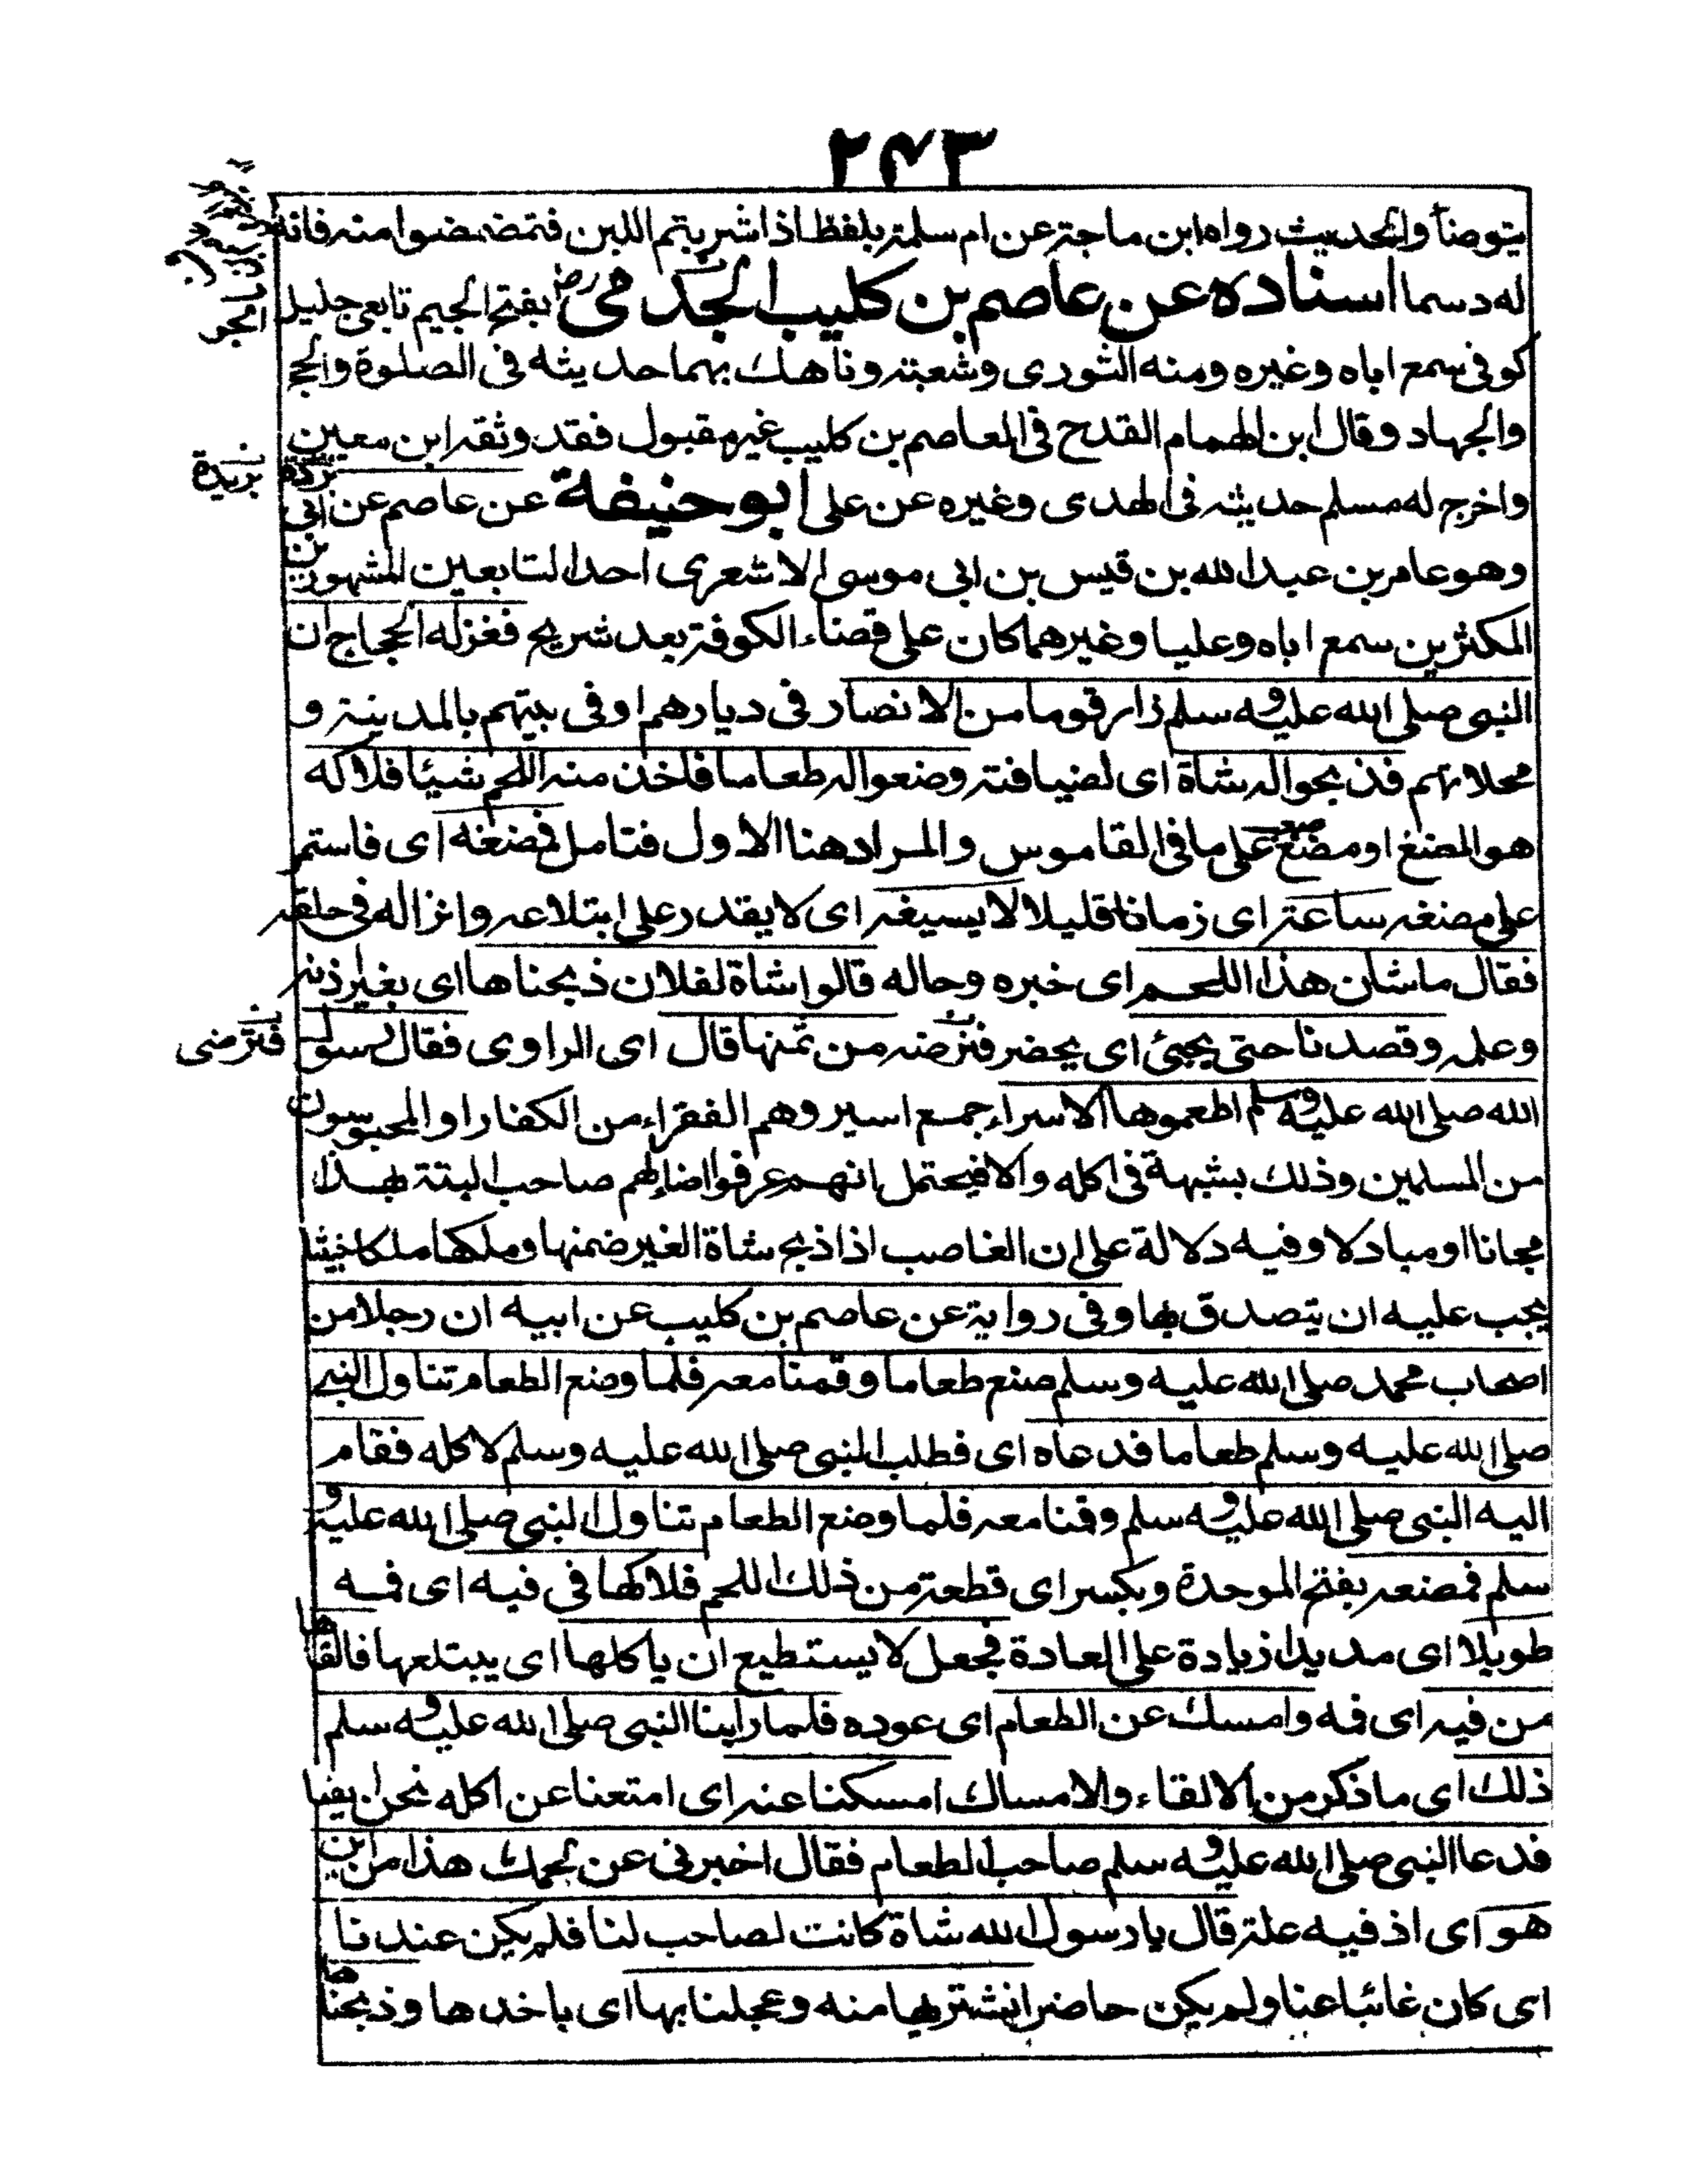 ٢٤٣
يتوضأ والحديث رواه ابن ماجة عن ام سلمة بلفظ اذا شربتم اللبن فتمضمضوا منه فانه
له دسما اسناده عن عاصم بن كليب الجدمى بفتح الجيم تابعى جليل
كوفى سمع اباه وغيره ومنه الثورى وشعبة وناهك بهما حديثه فى الصلوة والحج
والجهاد وقال ابن الهمام القدح فى العاصم بن كليب غير مقبول فقد وثقه ابن معين
واخرج له مسلم حديثه فى الهدى وغيره عن على ابو حنيفة عن عاصم عن ابى بردة
وهو عامر بن عبد الله بن قيس بن ابى موسى الاشعرى احد التابعين المشهورين
المكثرين سمع اباه وعليا وغيرهما كان على قضاء الكوفة بعد شريح فغزله الحجاج ان
النبى صلى الله عليه وسلم زار قوما من الانصار فى ديارهم او فى بيتهم بالمدينة و
محلاتهم فذبحوا له شاة اى لضيافته وضعوا له طعاما فاخذ منه اللحم شيئا فلاكه
هو المضغ او مضغ على ما فى القاموس والمراد هنا الاول فتامل فمضغه اى فاستمر
على مضغه ساعة اى زمانا قليلا لا يسيغه اى لا يقدر على ابتلاعه وانزاله فى حلقه
فقال ما شان هذا اللحم اى خبره وحاله قالوا شاة لفلان ذبحناها اى بغير اذنه
وعلمه وقصدنا حتى يجئ اى يحضر فنرضه من ثمنها قال اى الراوى فقال رسول
الله صلى الله عليه وسلم اطعموها الاسراء جمع اسير وهم الفقراء من الكفار او المحبوسون
من المسلمين وذلك بشبهة فى اكله والا فيحتمل انهم عرفوا صاحب البتة بهذا
مجانا او مبادلا وفيه دلالة على ان الغاصب اذا ذبح شاة الغير ضمنها وملكها ملكا خبيثا
يجب عليه ان يتصدق بها وفى رواية عن عاصم بن كليب عن ابيه ان رجلا من
اصحاب محمد صلى الله عليه وسلم صنع طعاما وقمنا معه فلما وضع الطعام تناول النبى
صلى الله عليه وسلم طعاما فدعاه اى فطلب النبى صلى الله عليه وسلم لاكله فقام
اليه النبى صلى الله عليه وسلم وقمنا معه فلما وضع الطعام تناول النبى صلى الله عليه و
سلم فمضعه بفتح الموحدة وبكسر اى قطعة من ذلك اللحم فلاكها فى فيه اى فمه
طويلا اى مديدا زيادة على العادة فجعل لا يستطيع ان ياكلها اى يبتلعها فالقاها
من فيه اى فمه وامسك عن الطعام اى عوده فلما راينا النبى صلى الله عليه وسلم
ذلك اى ما ذكر من الالقاء والامساك امسكنا عنه اى امتعنا عن اكله نحن ايضا
فدعا النبى صلى الله عليه وسلم صاحب الطعام فقال اخبرنى عن لحمك هذا من اين
هو اى اذ فيه علة قال يا رسول الله شاة كانت لصاحب لنا فلم يكن عندنا
اى كان غائبا عنا ولم يكن حاضرا نشتريها منه وعجلنا بها اى باخذها وذبحناها
بريدة
فنترضى